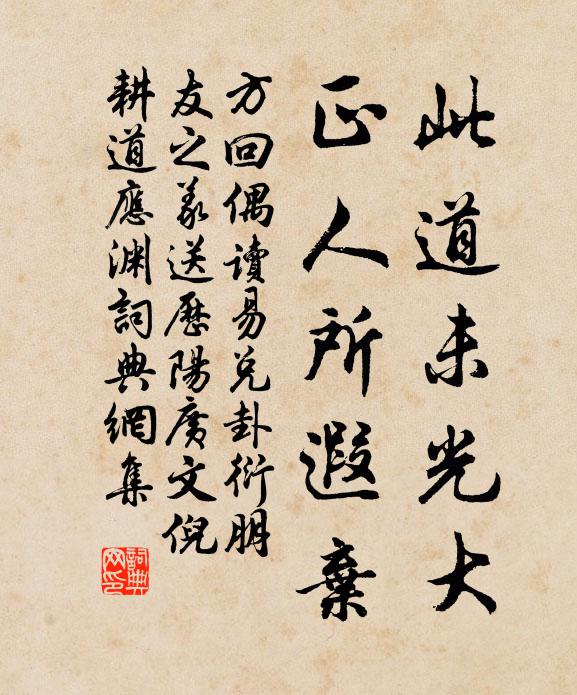 此道未光大
正人所遐棄
方回偶讀易兌卦衍朋
友之義送歷陽廣文倪
耕道應淵詞典網集
詞典網印